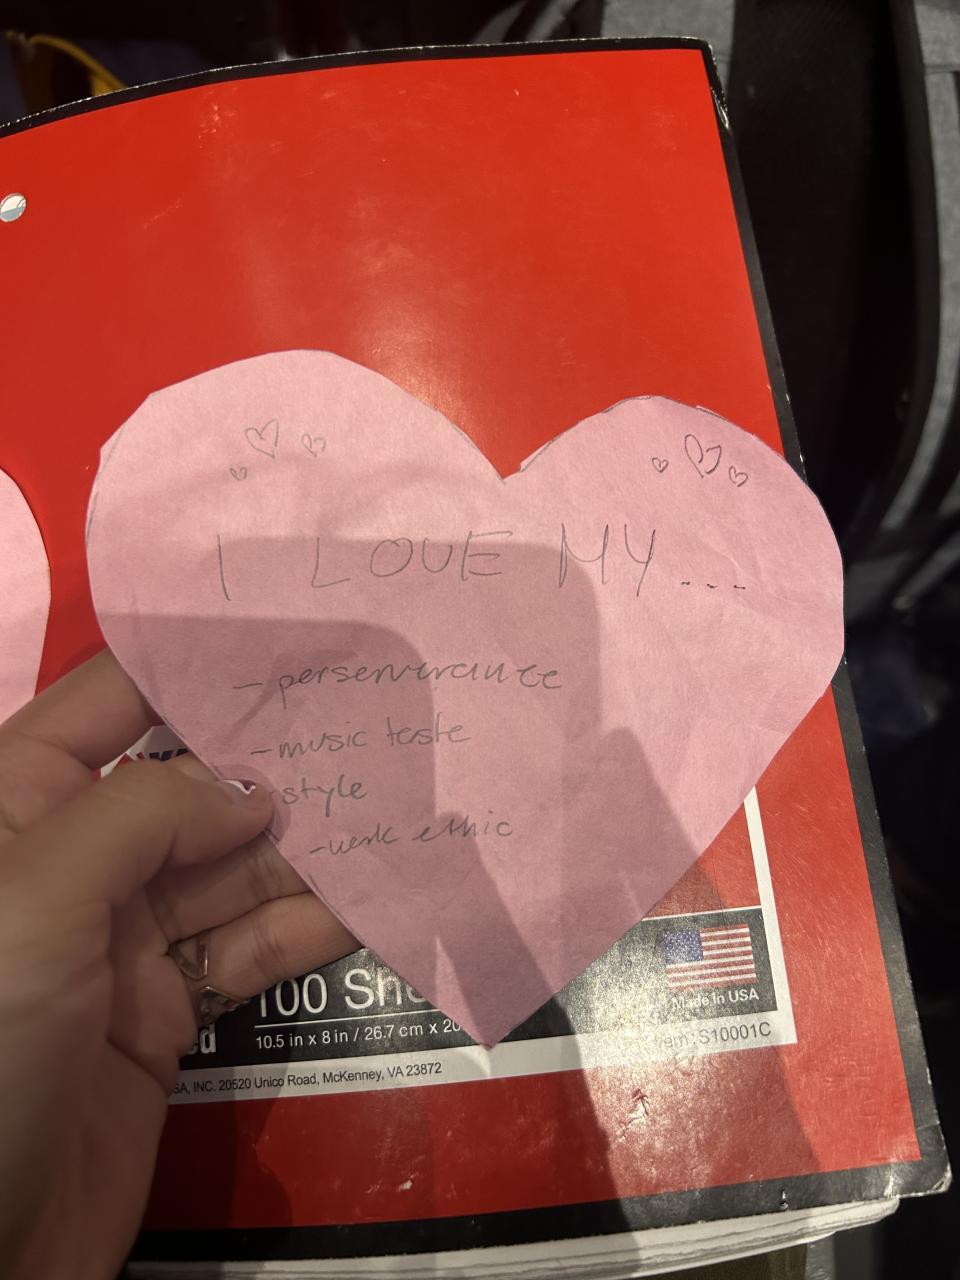 I LOVE MY...
- perserverance
- music taste
- style
- work ethic
100 She
10.5 in x 8 in / 26.7 cm x 20
Made in USA
em: S10001C
ed
SA, INC. 20520 Unico Road, McKenney, VA 23872